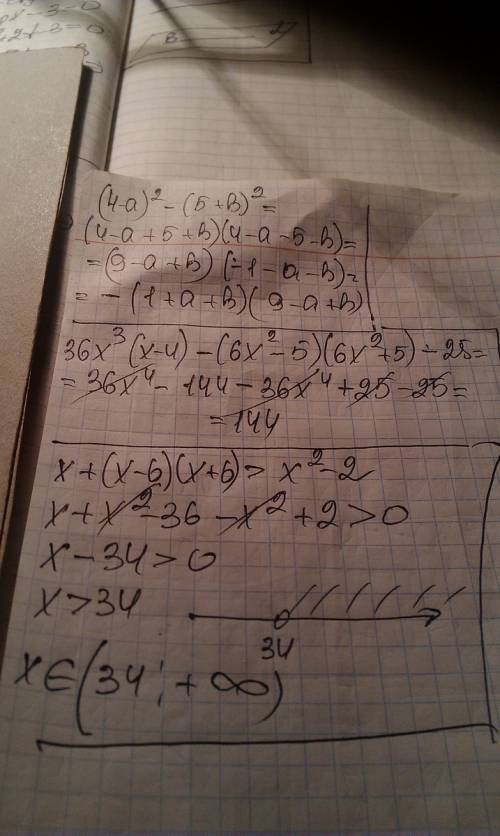 x² - 3 = 0
B
(4-a)² - (5+b)² =
(4-a+5+b)(4-a-5-b)=
=(9-a+b)(-1-a-b)=
= -(1+a+b)(9-a+b)
36x³(x-4) - (6x²-5)(6x²+5) - 25=
= 36x⁴ - 144 - 36x⁴ + 25 - 25 =
= 144
x+(x-6)(x+6)> x²-2
x+x²-36 -x²+2>0
x-34>0
x>34
34
x∈(34; +∞)